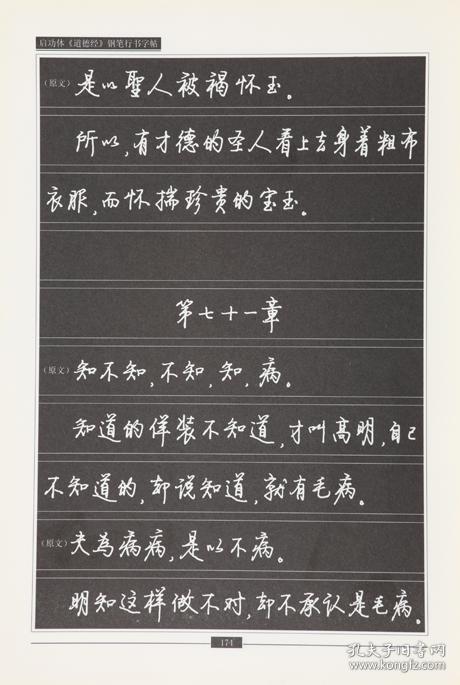 启功体《道德经》钢笔行书字帖
(原文)是以聖人被褐怀玉。
所以,有才德的圣人看上去身着粗布
衣服,而怀揣珍贵的宝玉。
第七十一章
(原文)知不知,不知,知,病。
知道的佯装不知道,才叫高明,自己
不知道的,却说知道,就有毛病。
(原文)夫為病病,是以不病。
明知这样做不对,却不承认是毛病。
174
孔夫子旧书网
www.kongfz.com